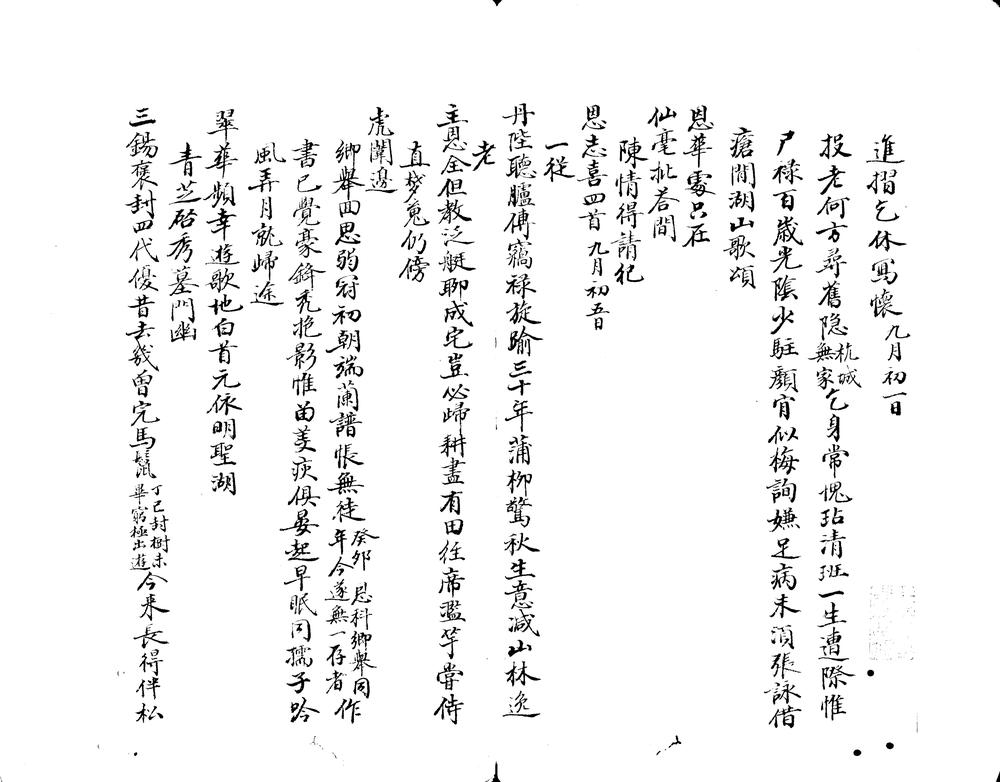 進摺乞休寫懷九月初一日
投老何方尋舊隐杭城無家乞身常愧玷清班一生遭際惟
尸祿百歲光陰少駐顏宵似梅詢嫌足病未須張詠借
瘡閒湖山歌頌
恩華處只在
仙毫批荅間
陳情得請紀
恩志喜四首九月初五日
一從
丹陛聽臚傳竊祿旋踰三十年蒲柳驚秋生意减山林逸
老
主恩全但教泛艇聊成宅豈必歸耕盡有田經席濫竽嘗侍
直梦魂仍傍
虎闈邊
鄉舉回思弱冠初朝端蘭譜悵無徒癸卯恩科鄉舉同年今遂無一存者作
書已覺豪鋒禿抱影惟留美疢俱晏起早眠同孺子吟
風弄月就歸途
翠華頻幸遊歌地白首元依明聖湖
青芝啓秀墓門幽
三錫褒封四代優昔去幾曾完馬鬣丁巳封樹未畢窮極出遊今来長得伴松